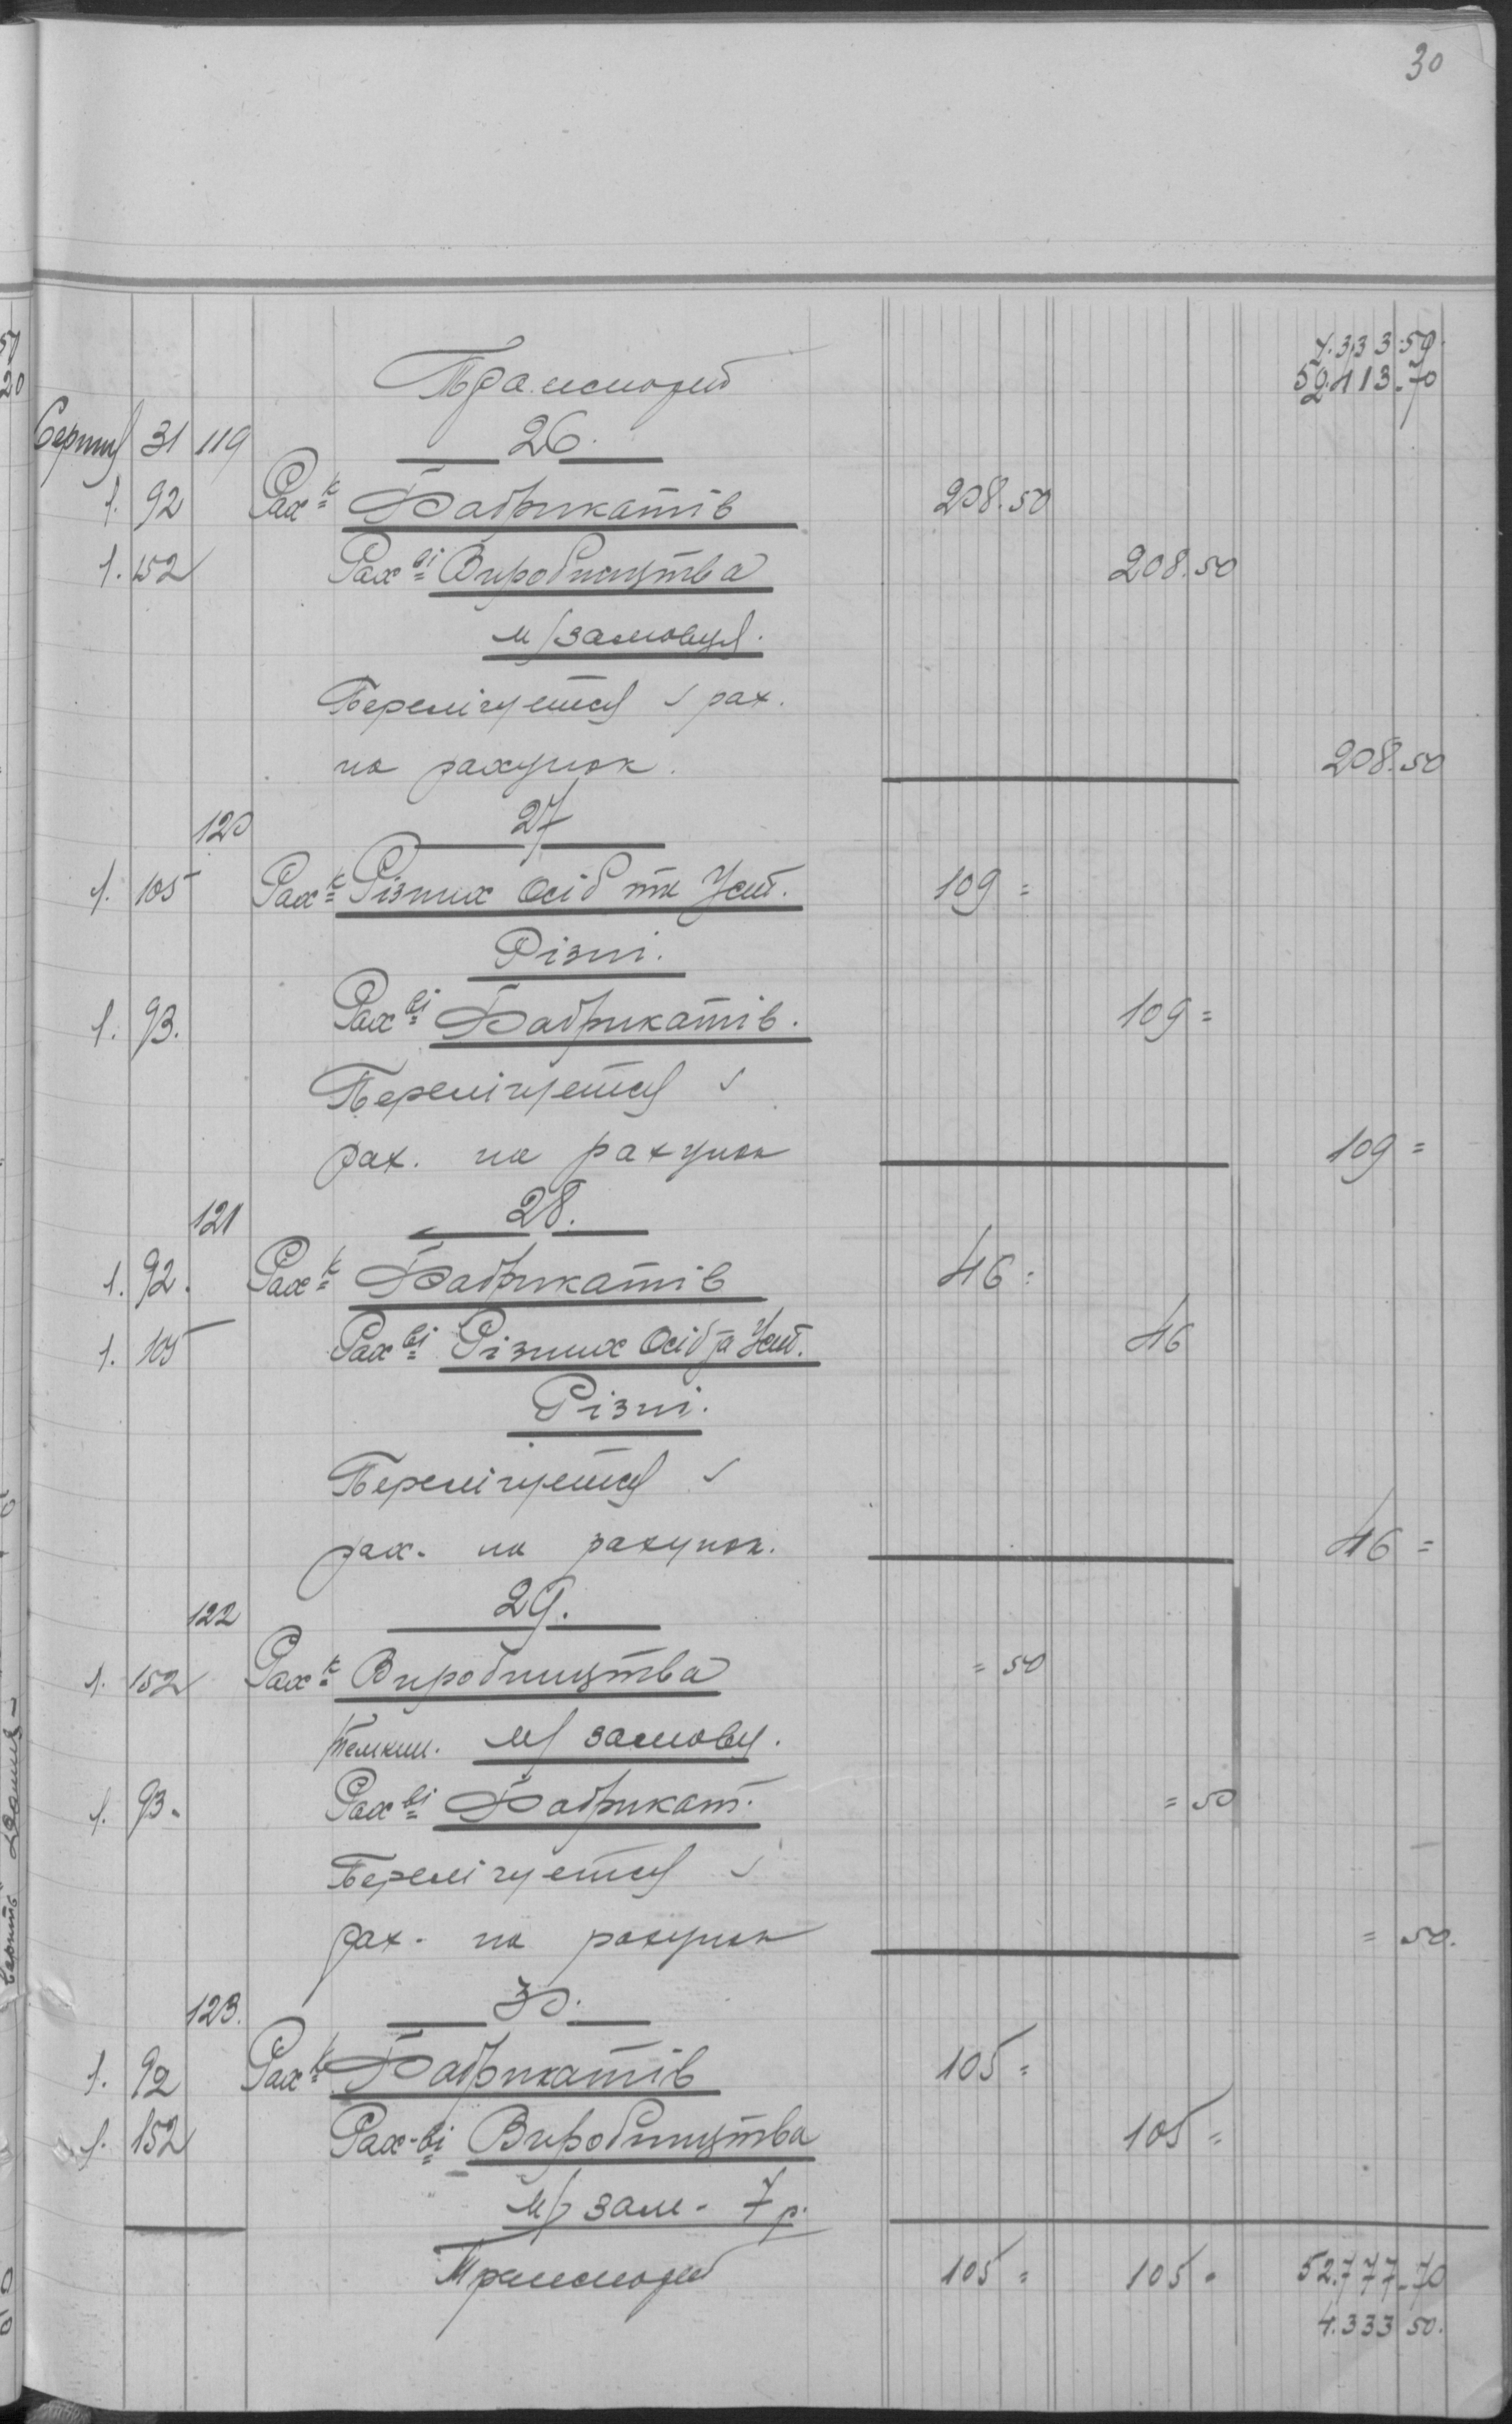 30
4.333.50.
52.413.70
Транспорт
Серпня 31 119 26.
1. 92 Рах-к Фабрикатів 208.50
1. 152 Рах-ві Виробництва 208.50
м/замовця.
Перелічується з рах.
на рахунок. 208.50
120 27
1. 105 Рах-к Різних Осіб та Уст. 109 =
Різні.
1. 93. Рах-ві Фабрикатів. 109 =
Перелічується з
рах. на рахунок 109 =
121 28.
1. 92. Рах-к Фабрикатів 46 =
1. 105 Рах-ві Різних Осіб та Уст. 46
Різні.
Перелічується з
рах. на рахунок. 46 =
122 29.
1. 152 Рах-к Виробництва = 50
м/ замовц.
1. 93. Рах-ві Фабрикат. = 50
Перелічується з
рах. на рахунок = 50.
123. 30.
1. 92 Рах-к Фабрикатів 105 =
1. 152 Рах-ві Виробництва 105 =
м/ зам. 7 р.
Транспорт 105 = 105 = 52.777.70
4.333 50.